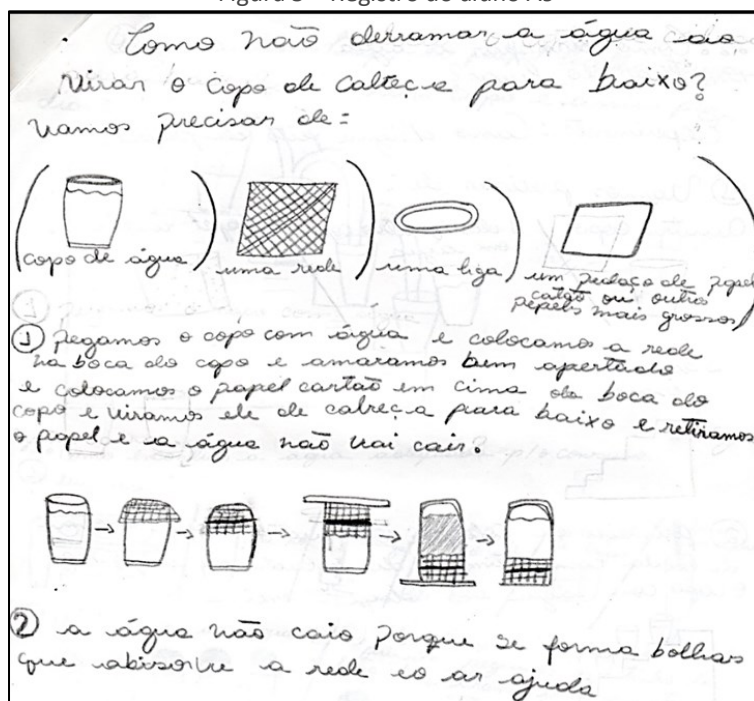 Figura 3 – Registro do aluno A5
. Como não derramar a água ao
virar o copo de cabeça para baixo?
vamos precisar de=
copo de água
uma rede
uma liga
um pedaço de papel
cartão ou outros
papeis mais grossos
① pegamos o copo com água e colocamos a rede
na boca do copo e amaramos bem apertado
e colocamos o papel cartão em cima da boca do
copo e viramos ele de cabeça para baixo e retiramos
o papel e a água não vai cair.
② a água não caio porque se forma bolhas
que abisorve a rede eo ar ajuda